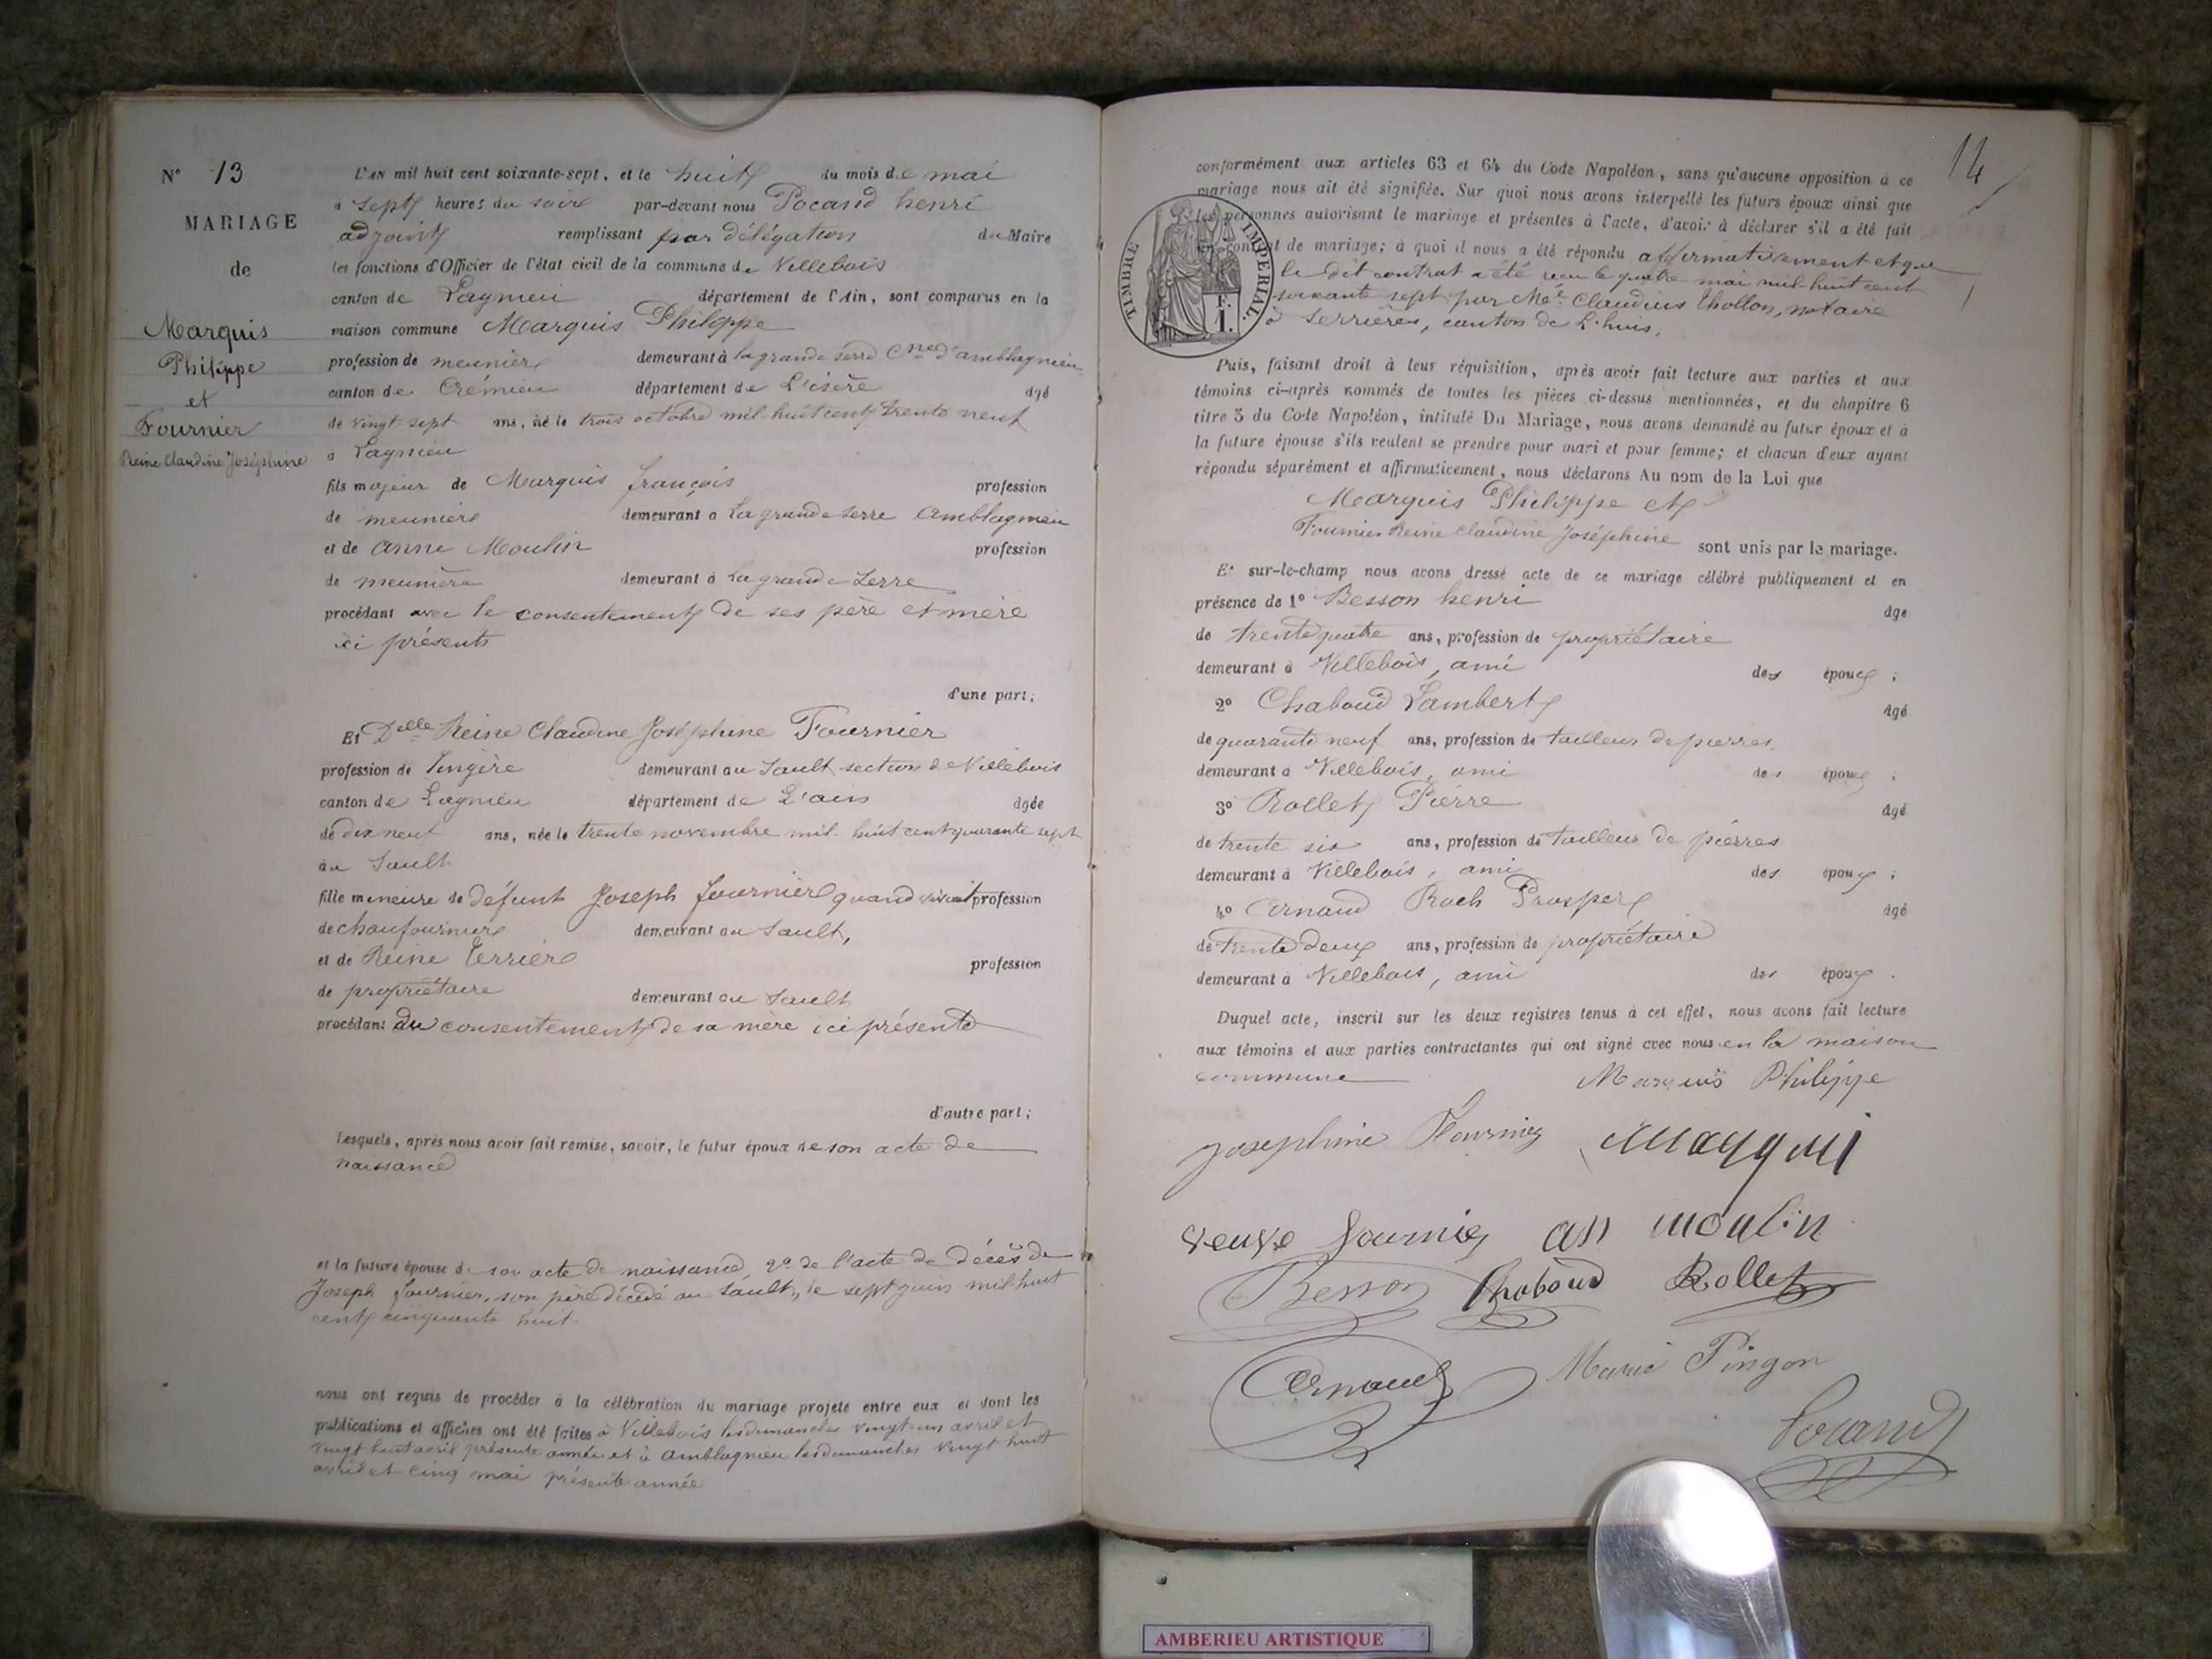 N° 13
MARIAGE
de
Marquis
Philippe
et
Fournier
Reine Claudine Joséphine
L'AN mil huit cent soixante-sept, et le huit du mois de mai
à sept heures du soir par-devant nous Pocard henri
adjoint remplissant par délégation du Maire
les fonctions d'Officier de l'état civil de la commune de Villebois
canton de Lagnieu département de l'Ain, sont comparus en la
maison commune Marquis Philippe
profession de meunier demeurant à la grande serre Cne d'amblagnieu
canton de Crémieu département de L'isère âgé
de vingt sept ans, né le trois octobre mil huit cent trente neuf
à Lagnieu
fils majeur de Marquis françois profession
de meunier demeurant à la grande serre amblagnieu
et de anne Moulin profession
de meunière demeurant à la grande Serre
procédant avec le consentement de ses père et mère
ici présents
d'une part;
Et Delle Reine Claudine Joséphine Fournier
profession de lingère demeurant au Sault section de Villebois
canton de Lagnieu département de L'ain âgée
de dix neuf ans, née le trente novembre mil huit cent quarante sept
au Sault
fille mineure de défunt Joseph fournier quand vivait profession
de chaufournier demeurant au Sault,
et de Reine Terrier profession
de propriétaire demeurant au Sault
procédant du consentement de sa mère ici présente
d'autre part;
Lesquels, après nous avoir fait remise, savoir, le futur époux de son acte de
naissance
et la future épouse de son acte de naissance, 2° de l'acte de décès de
Joseph fournier, son père décédé au Sault, le sept juin mil huit
cent cinquante huit
nous ont requis de procéder à la célébration du mariage projeté entre eux et dont les
publications et affiches ont été faites à Villebois les dimanches vingt un avril et
vingt huit avril présente année et à amblagnieu les dimanches vingt huit
avril et cinq mai présente année
14
conformément aux articles 63 et 64 du Code Napoléon, sans qu'aucune opposition à ce
mariage nous ait été signifiée. Sur quoi nous avons interpellé les futurs époux ainsi que
les personnes autorisant le mariage et présentes à l'acte, d'avoir à déclarer s'il a été fait
un contrat de mariage; à quoi il nous a été répondu affirmativement et que
le dit contrat a été reçu le quatre mai mil huit cent
soixante sept par Me Claudius Thollon, notaire
à Serrières, canton de L'huis.
TIMBRE IMPERIAL
F.
1.
Puis, faisant droit à leur réquisition, après avoir fait lecture aux parties et aux
témoins ci-après nommés de toutes les pièces ci-dessus mentionnées, et du chapitre 6
titre 5 du Code Napoléon, intitulé Du Mariage, nous avons demandé au futur époux et à
la future épouse s'ils veulent se prendre pour mari et pour femme; et chacun d'eux ayant
répondu séparément et affirmativement, nous déclarons Au nom de la Loi que
Marquis Philippe et
Fournier Reine Claudine Joséphine sont unis par le mariage.
Et sur-le-champ nous avons dressé acte de ce mariage célébré publiquement et en
présence de 1° Besson henri âgé
de trente quatre ans, profession de propriétaire
demeurant à Villebois, ami des époux ;
2° Chaboud Lambert âgé
de quarante neuf ans, profession de tailleur de pierres
demeurant à Villebois, ami des époux ;
3° Rollet Pierre âgé
de trente six ans, profession de tailleur de pierres
demeurant à Villebois, ami des époux ;
4° Arnaud Roch Prosper âgé
de trente deux ans, profession de propriétaire
demeurant à Villebois, ami des époux .
Duquel acte, inscrit sur les deux registres tenus à cet effet, nous avons fait lecture
aux témoins et aux parties contractantes qui ont signé avec nous en la maison
commune
Marquis Philippe
Josephine Fournier
Marquis
veuve fournier an moulin
Besson Chaboud Rollet
Arnaud Marie Pingon
Pocard
AMBERIEU ARTISTIQUE